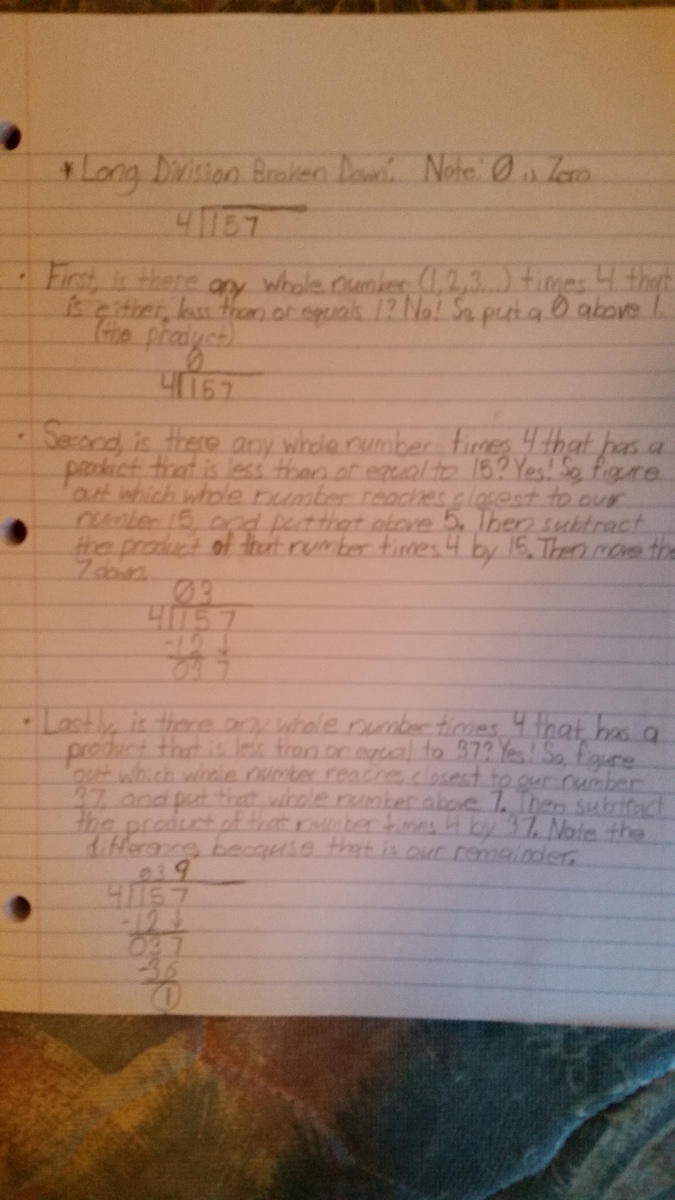 * Long Division Broken Down: Note: 0 is Zero
4 157
· First, is there any whole number (1,2,3...) times 4 that
is either, less than or equals 1? No! So put a 0 above 1.
(the product)
0
4 157
· Second, is there any whole number times 4 that has a
product that is less than or equal to 15? Yes! So, figure
out which whole number reaches closest to our
number 15, and put that above 5. Then subtract
the product of that number times 4 by 15. Then move the
7 down.
03
4 157
-12 ↓
037
· Lastly, is there any whole number times 4 that has a
product that is less than or equal to 37? Yes! So, figure
out which whole number reaches closest to our number
37, and put that whole number above 7. Then subtract
the product of that number times 4 by 37. Note the
difference, because that is our remainder.
039
4 157
-12 ↓
037
-36
1